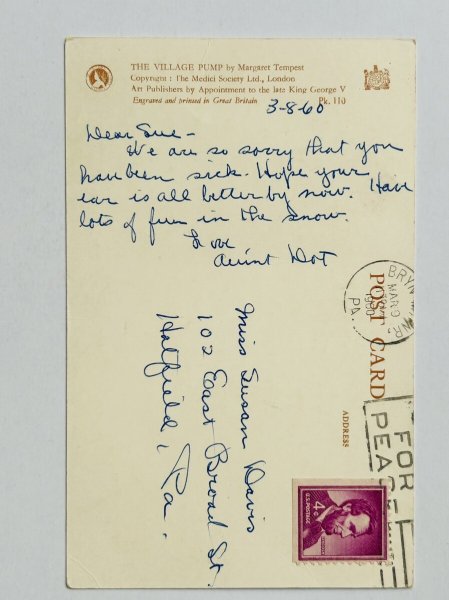 THE VILLAGE PUMP by Margaret Tempest
Copyright : The Medici Society Ltd., London
Art Publishers by Appointment to the late King George V
Engraved and printed in Great Britain Pk. 110
3-8-60
Dear Sue -
We are so sorry that you
have been sick. Hope your
ear is all better by now. Have
lots of fun in the snow.
Love
Aunt Dot
POST CARD
ADDRESS
Miss Susan Davis
102 East Broad St.
Hatfield, Pa.
BRYN
MAR 9
1960
PA.
FOR
PEACE
U.S. POSTAGE
4¢